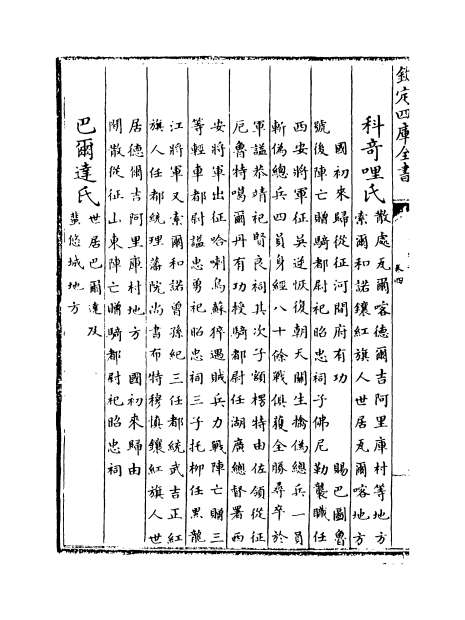 欽定四庫全書
卷四
科奇哩氏
散處瓦爾喀德爾吉阿里庫村等地方
索爾和諾鑲紅旗人世居瓦爾喀地方
國初來歸從征河間府有功　賜巴圖魯
號後陣亡贈騎都尉祀昭忠祠子佛尼勒襲職任
西安將軍征吳逆恢復朝天關生擒偽總兵一員
斬偽總兵四員身經八十餘戰俱獲全勝尋卒於
軍謚恭靖祀賢良祠其次子額楞特由佐領從征
厄魯特噶爾丹有功授騎都尉任湖廣總督署西
安將軍出征哈喇烏蘇猝遇賊兵力戰陣亡贈三
等輕車都尉謚忠勇祀昭忠祠三子托柳任黑龍
江將軍又索爾和諾曾孫紀三任都統武吉正紅
旗人任都統理藩院尚書布特穆慎鑲紅旗人世
居德爾吉阿里庫村地方　國初來歸由
閒散從征山東陣亡贈騎都尉祀昭忠祠
巴爾達氏
世居巴爾達及
蜚悠城地方